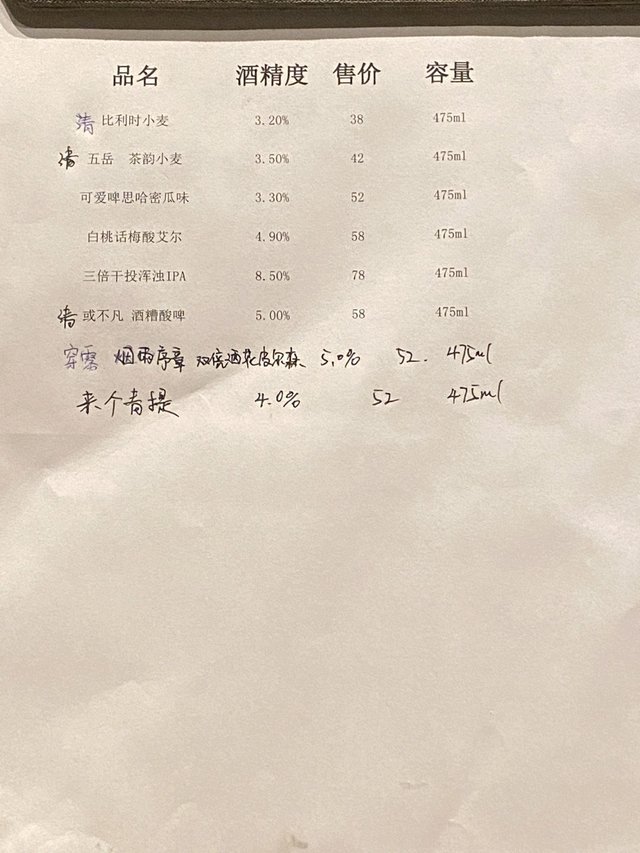 品名 酒精度 售价 容量
清 比利时小麦 3.20% 38 475ml
清 五岳 茶韵小麦 3.50% 42 475ml
可爱啤思哈密瓜味 3.30% 52 475ml
白桃话梅酸艾尔 4.90% 58 475ml
三倍干投浑浊IPA 8.50% 78 475ml
清 或不凡 酒糟酸啤 5.00% 58 475ml
烟雨序章 双倍酒花皮尔森 5.0% 52. 475ml
来个青提 4.0% 52 475ml